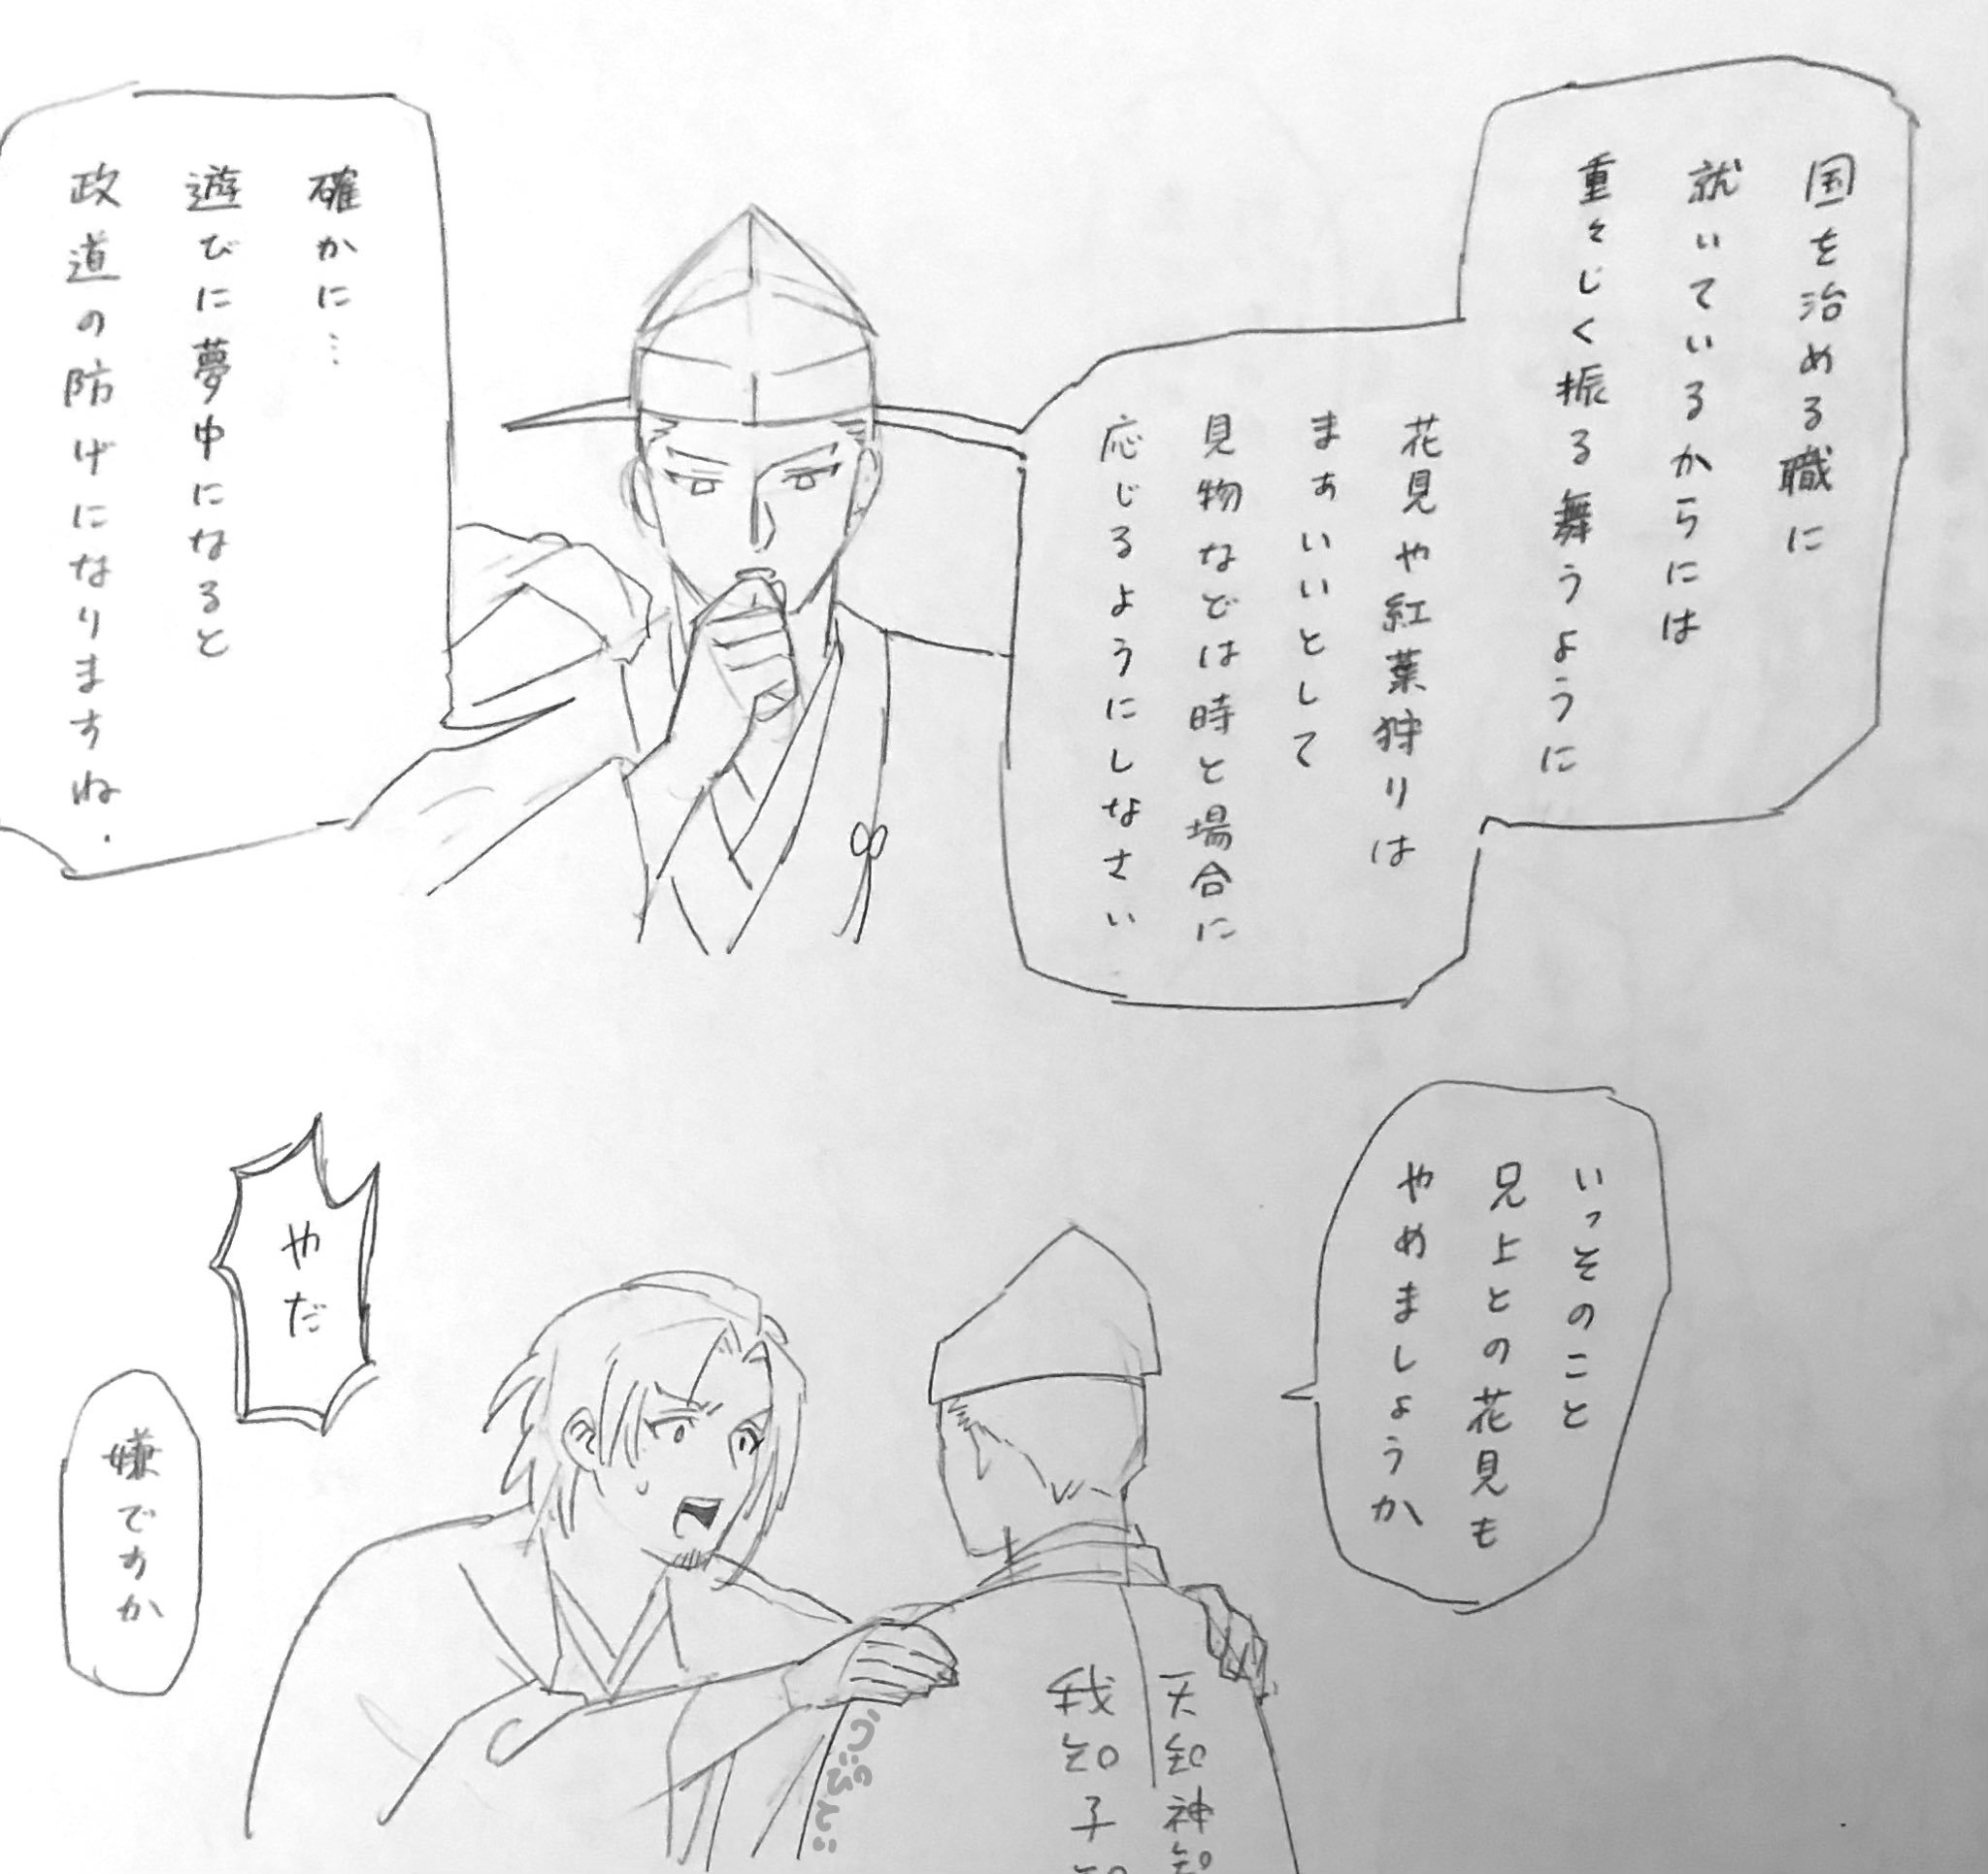 国を治める職に
就いているからには
重々しく振る舞うように
花見や紅葉狩りは
まぁいいとして
見物などは時と場合に
応じるようにしなさい
確かに…
遊びに夢中になると
政道の防げになりますね.
いっそのこと
兄上との花見も
やめましょうか
やだ
嫌ですか
天知神知
我知子知